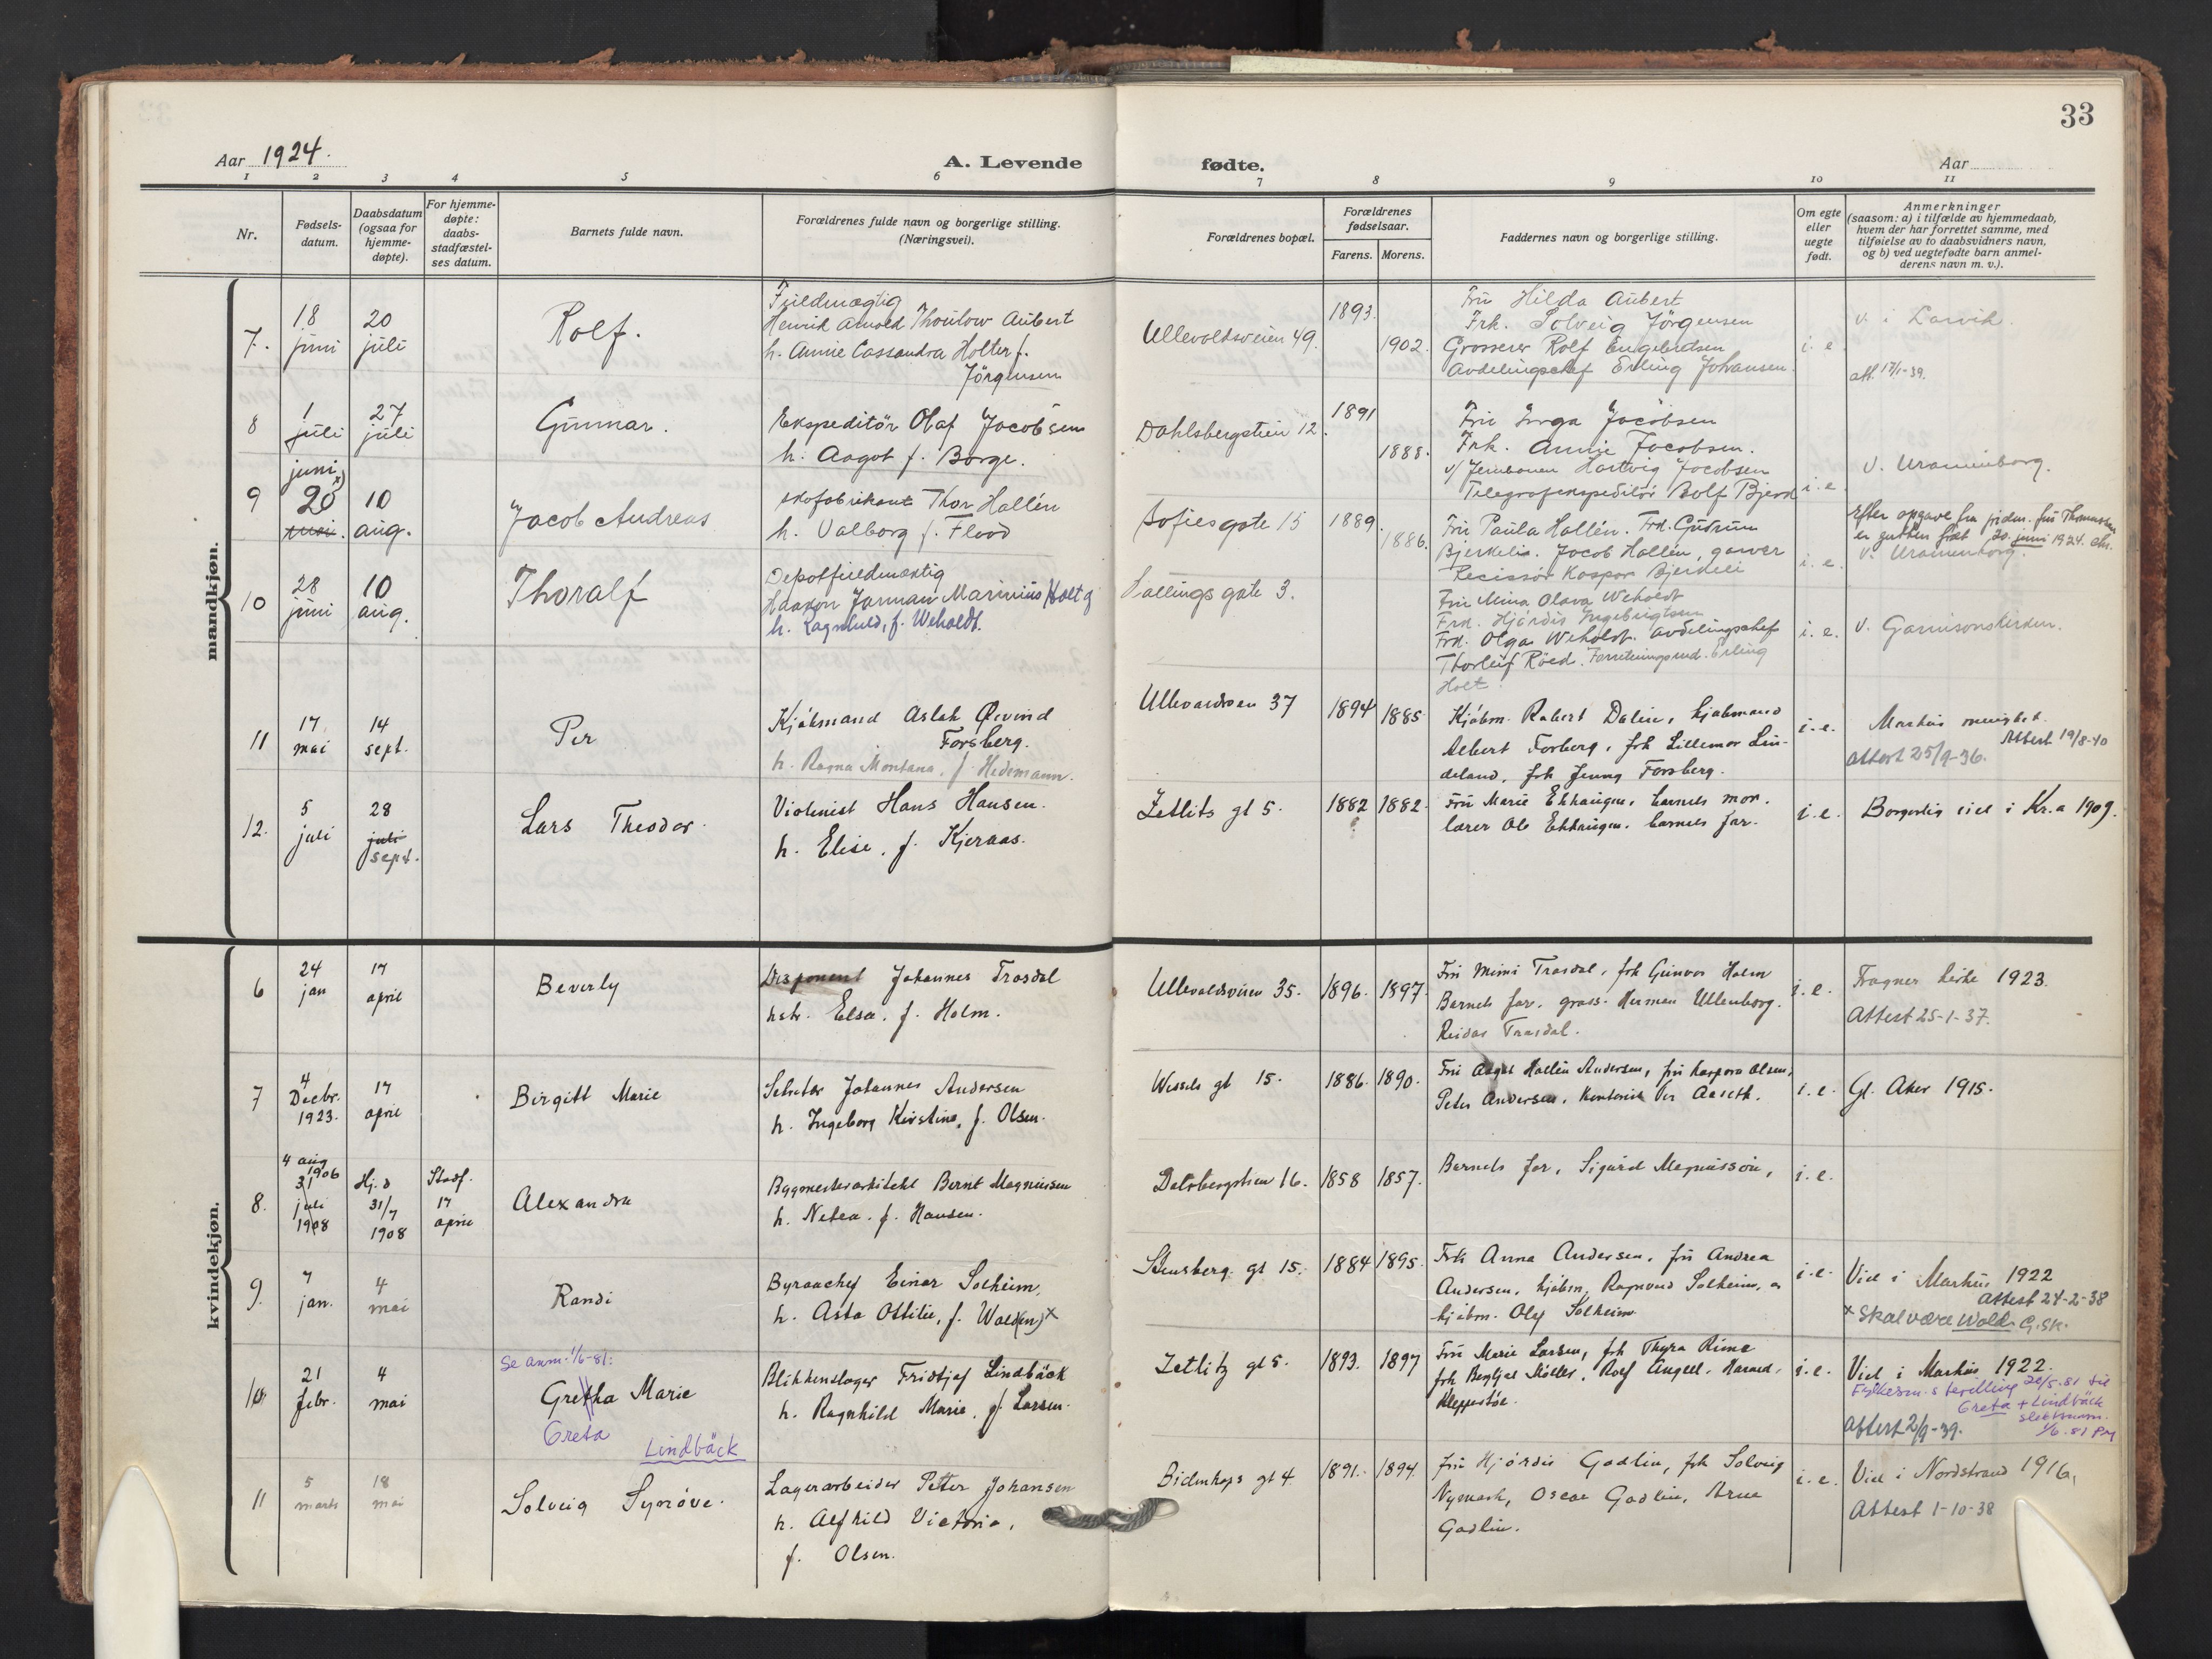 33
Aar 1924. A. Levende fødte. Aar
1 2 3 4 5 6 7 8 9 10 11
Nr. Fødsels-datum. Daabsdatum (ogsaa for hjemme-døpte). For hjemme-døpte: daabs-stadfæstel-ses datum. Barnets fulde navn. Forældrenes fulde navn og borgerlige stilling. (Næringsvei). Forældrenes bopæl. Forældrenes fødselsaar. Farens. Morens. Faddernes navn og borgerlige stilling. Om egte eller uegte født. Anmerkninger (saasom: a) i tilfælde av hjemmedaab, hvem der har forrettet samme, med tilføielse av to daabsvidners navn, og b) ved uegtefødte barn anmel-derens navn m. v.).
mandkjøn.
7. 18 juni 20 juli Rolf.
Henrik Arnold Thoulow Aubert
h. Annie Cassandra Holter f.
Jörgensen
Ullevoldsveien 49. 1893. 1902.
Fru Hilda Aubert
Frk. Solveig Jörgensen
Grosserer Rolf Engebretsen
Avdelingschef Erling Johansen.
i. e. v. i Larvik.
att. 17/1-39.
8 1 juli 27 juli Gunnar.
Ekspeditör Olaf Jacobsen
h. Aagot f. Borge.
Dahlsbergstien 12. 1891 1888.
Fru Inga Jacobsen
Frk. Annie Jacobsen.
Hartvig Jacobsen
Telegrafekspeditör Rolf Bjerd
i. e. V. Uranienborg.
9 juni 20 mai. 10 aug. Jacob Andreas
skofabrikant Thor Hallén
h. Valborg f. Flood
Sofies gate 15 1889. 1886.
Fru Paula Hallén. Frk. Gudrun
Bjerkelie. Jacob Hallén, garver
Kaspar Bjerkeli
i. e. Efter opgave fra jordm. fru Thomassen
er gutten født 20. juni 1924.
v. Uranienborg.
10 28 juni 10 aug. Thoralf
Haakon Jarman Marinius Holt g
h. Ragnhild, f. Weholdt.
Sallings gate 3.
Fru Mina Olava Weholdt
Frk. Hjördis Ingebrigtsen
Frk. Olga Weholdt. avdelingschef
Thorleif Röed. Forretningsmd. Erling
Holt.
i. e. v. Garnisonskirken.
11 17 mai 14 sept. Per
Kjöbmand Aslak Øivind
Forsberg.
h. Ragna Montana, f. Hedemann.
Ullevaldsvn 37 1894 1885
Kjöbm. Robert Dalin, kjøbmand
Albert Forberg, frk Lillemor Lin-
deland, frk Jenny Forsberg.
i. e. Markus menighet.
Attest 19/8-40
attest 25/9-36.
12. 5 juli 28 juli sept. Lars Theodor.
Violinist Hans Hansen.
h. Elise, f. Kjeraas.
Zetlits gt 5. 1882 1882
Fru Marie Ekhaugen, barnets mor.
lærer Ole Ekhaugen. barnets far.
i. e. Borgerlig viet i Kr.a 1909.
kvindekjøn.
6 24 jan 17 april Beverly
Disponent Johannes Trosdal
hstr. Elsa. f. Holm.
Ullevoldsveien 35. 1896. 1897
Fru Mimi Trosdal, frk Gunvor Holm
Barnets far. gross. Herman Ullenborg.
Reidar Trosdal.
i. e. Fragner kirke 1923.
Attest 25-1-37.
7 4 Decbr. 1923. 17 april Birgitt Marie
Sekretær Johannes Andersen
h. Ingeborg Kirstine, f. Olsen.
Wessels gt 15. 1886. 1890.
Fru Aagot Hallén Andersen, fru Kaspara Olsen,
Peter Andersen, Kontorist Per Aaseth.
i. e. Gl. Aker 1915.
8. 4 aug 1906 31 juli 1908 Hj. d 31/7 1908 Stadf. 17 april Alexandra
Bygmesterarkitekt Bernt Magnussen
h. Netea. f. Hansen.
Dalsbergstien 16. 1858 1857.
Barnets far, Sigurd Magnusson,
i. e.
9. 7 jan. 4 mai Randi
Byraachef Einar Solheim,
h. Asta Ottilie, f. Wold(en) x
Stensberg. gt 15. 1884 1895.
Frk Anna Andersen, fru Andrea
Andersen, kjøbm. Ragnvald Solheim, og
kjøbm. Olaf Solheim
i. e. Viet i Markus 1922
attest 24-2-38
x Skal være Wold. G. Sk.
10 21 febr. 4 mai
Se anm. 1/6-81:
Gretha Marie
Greta
Lindbäck
Blikkenslager Fridtjof Lindbäck
h. Ragnhild Marie, f. Larsen.
Zetlitz gt 5. 1893. 1897
Fru Marie Larsen, frk Thyra Rime
frk Bergljot Møller, Rolf Angell. Harald.
Kleppestøe.
i. e. Viet i Markus 1922.
Fylkesm.s bevilling 20/5.81 til
Greta + Lindbäck
slektsnavn.
1/6.81 PM
attest 2/9-39.
11 5 marts 18 mai Solveig Synöve.
Lagerarbeider Petter Johansen
h. Alfhild Victoria,
f. Olsen.
Bidenkaps gt 4 1891. 1894.
fru Hjördis Gadlin, frk Solveig
Nymark, Oscar Gadlin, Arne
Gadlin.
i. e. Viet i Nordstrand 1916,
Attest 1-10-38